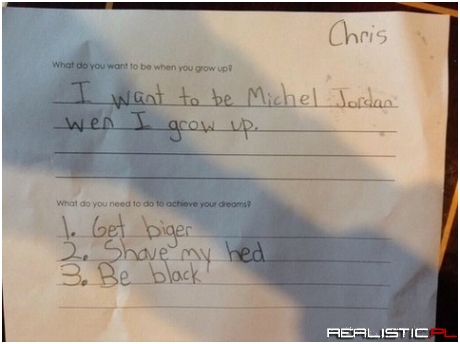 Chris
What do you want to be when you grow up?
I want to be Michel Jordan
wen I grow up.
What do you need to do to achieve your dreams?
1. Get biger
2. Shave my hed
3. Be black
REALISTIC.PL